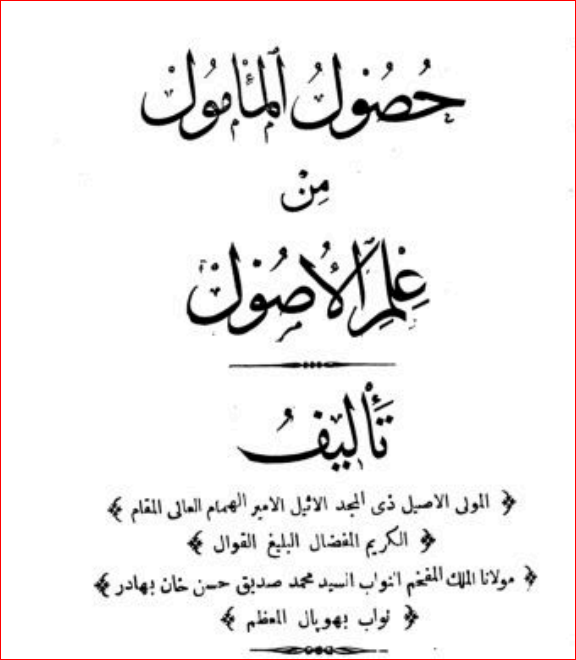 حُصُولُ المأمُول
مِنْ
عِلْمِ الأُصُولْ
تَأْلِيفُ
﴿ المولى الاصيل ذى المجد الاثيل الامير الهمام العالى المقام ﴾
﴿ الكريم المفضال البليغ القوال ﴾
﴿ مولانا الملك المفخم النواب السيد محمد صديق حسن خان بهادر ﴾
﴿ نواب بهوپال المعظم ﴾